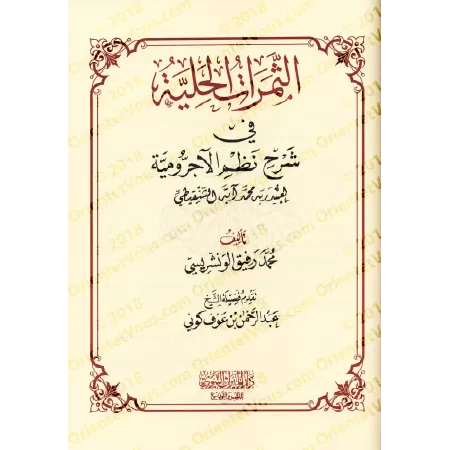 الثمرات الحلية
في
شرح نظم الآجرومية
لعبيد ربه محمد آبه الشنقيطي
تأليف
محمد رفيق الونشريسي
تقديم فضيلة الشيخ
عبد الرحمن بن عوف كوني
دار الميراث النبوي
للنشر والتوزيع